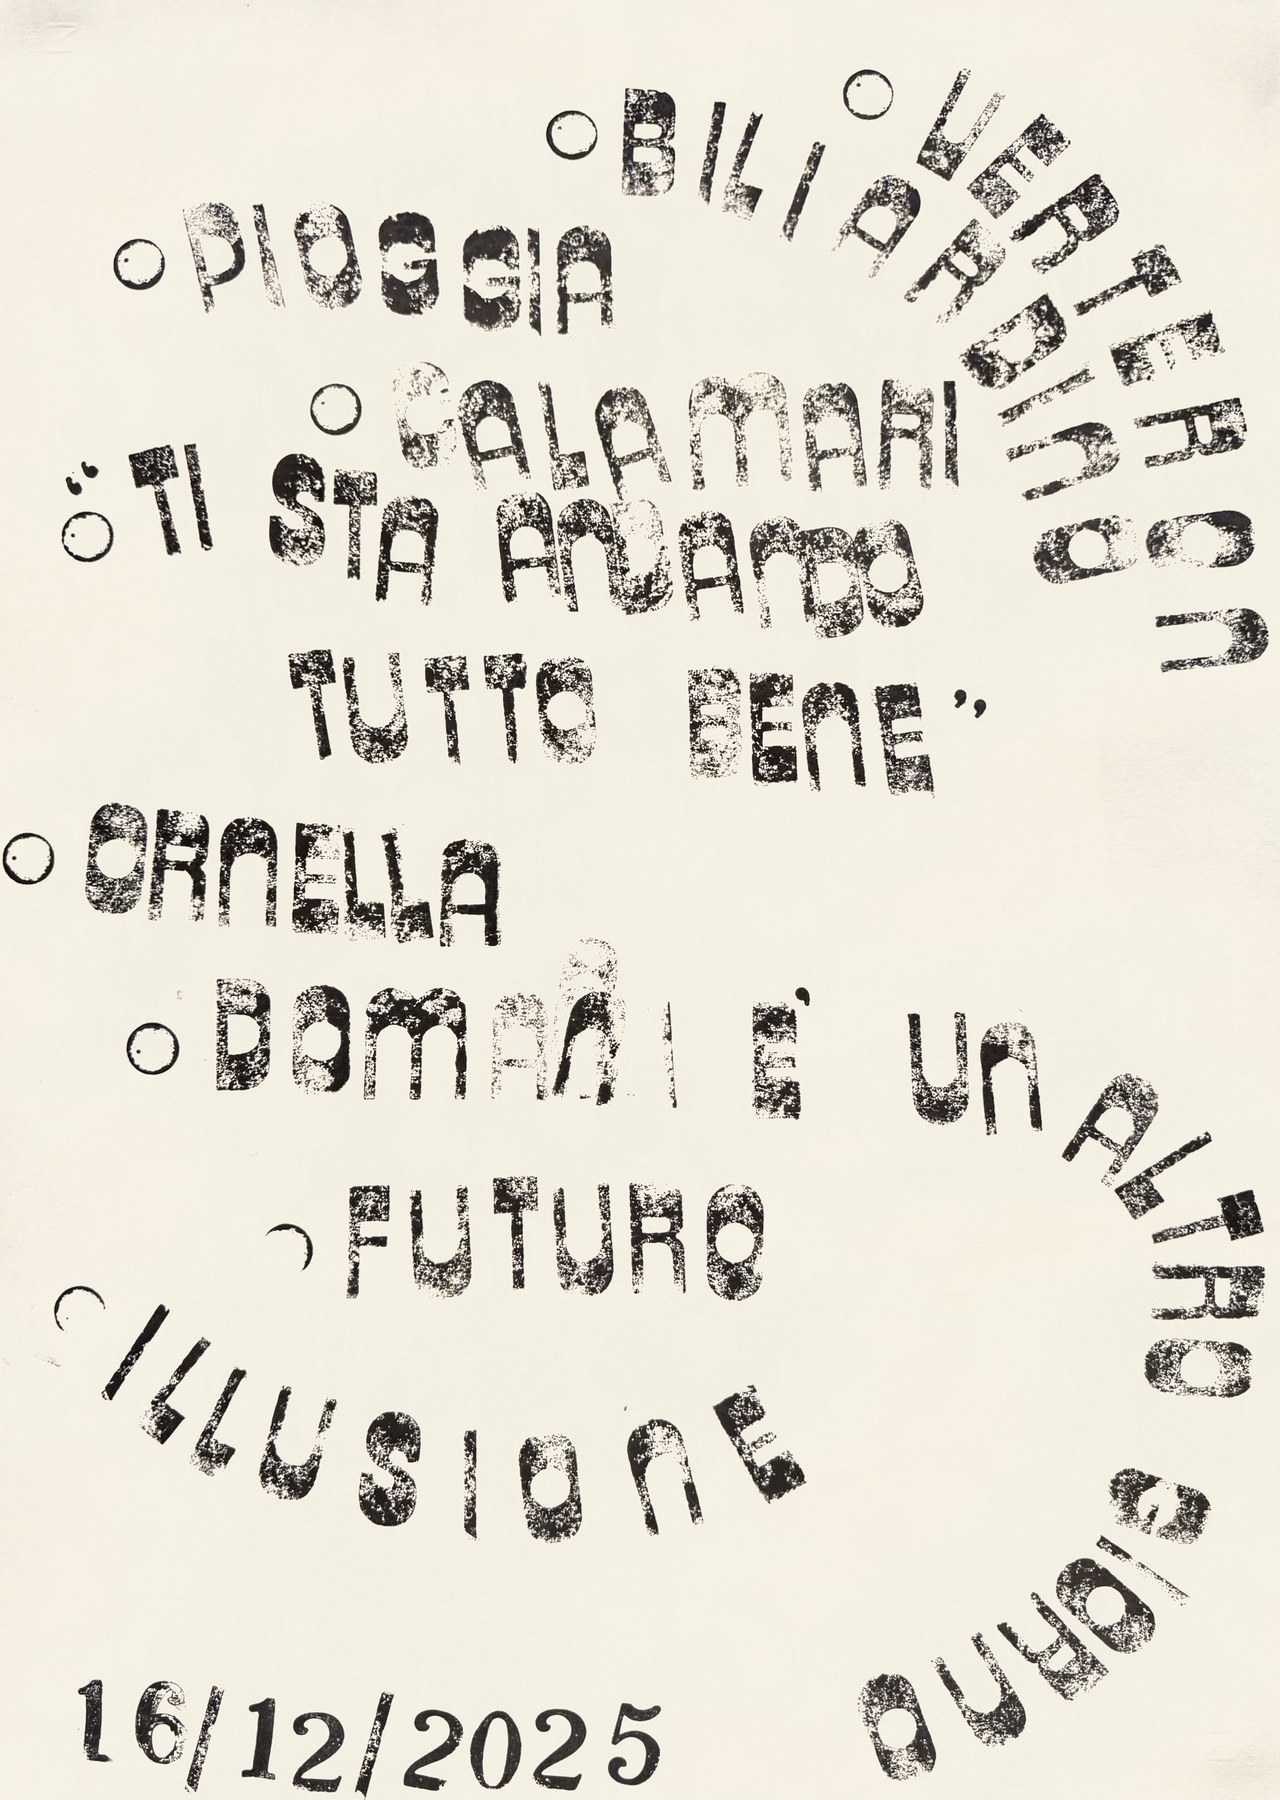 PIOGGIA
BILIARDINO
VERTERON
CALAMARI
“TI STA ANDANDO
TUTTO BENE”
ORNELLA
DOMANI E’ UN ALTRO GIORNO
FUTURO
ILLUSIONE
16/12/2025